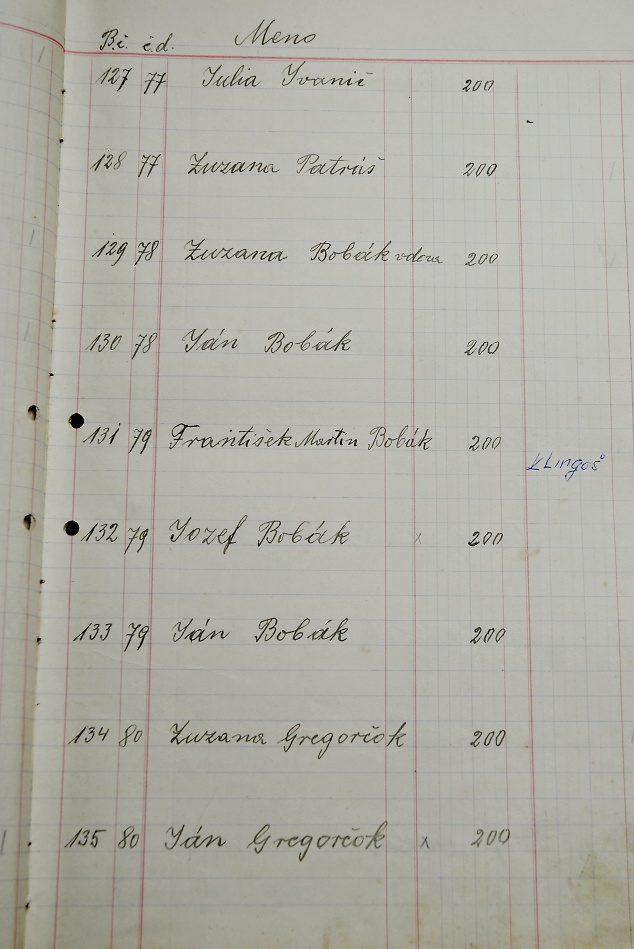 B.č. č.d. Meno
127 77 Julia Ivanič 200
128 77 Zuzana Patráš 200
129 78 Zuzana Bobák vdova 200
130 78 Ján Bobák 200
131 79 František Martin Bobák 200
Klingoš
132 79 Jozef Bobák x 200
133 79 Ján Bobák 200
134 80 Zuzana Gregorčok 200
135 80 Ján Gregorčok x 200